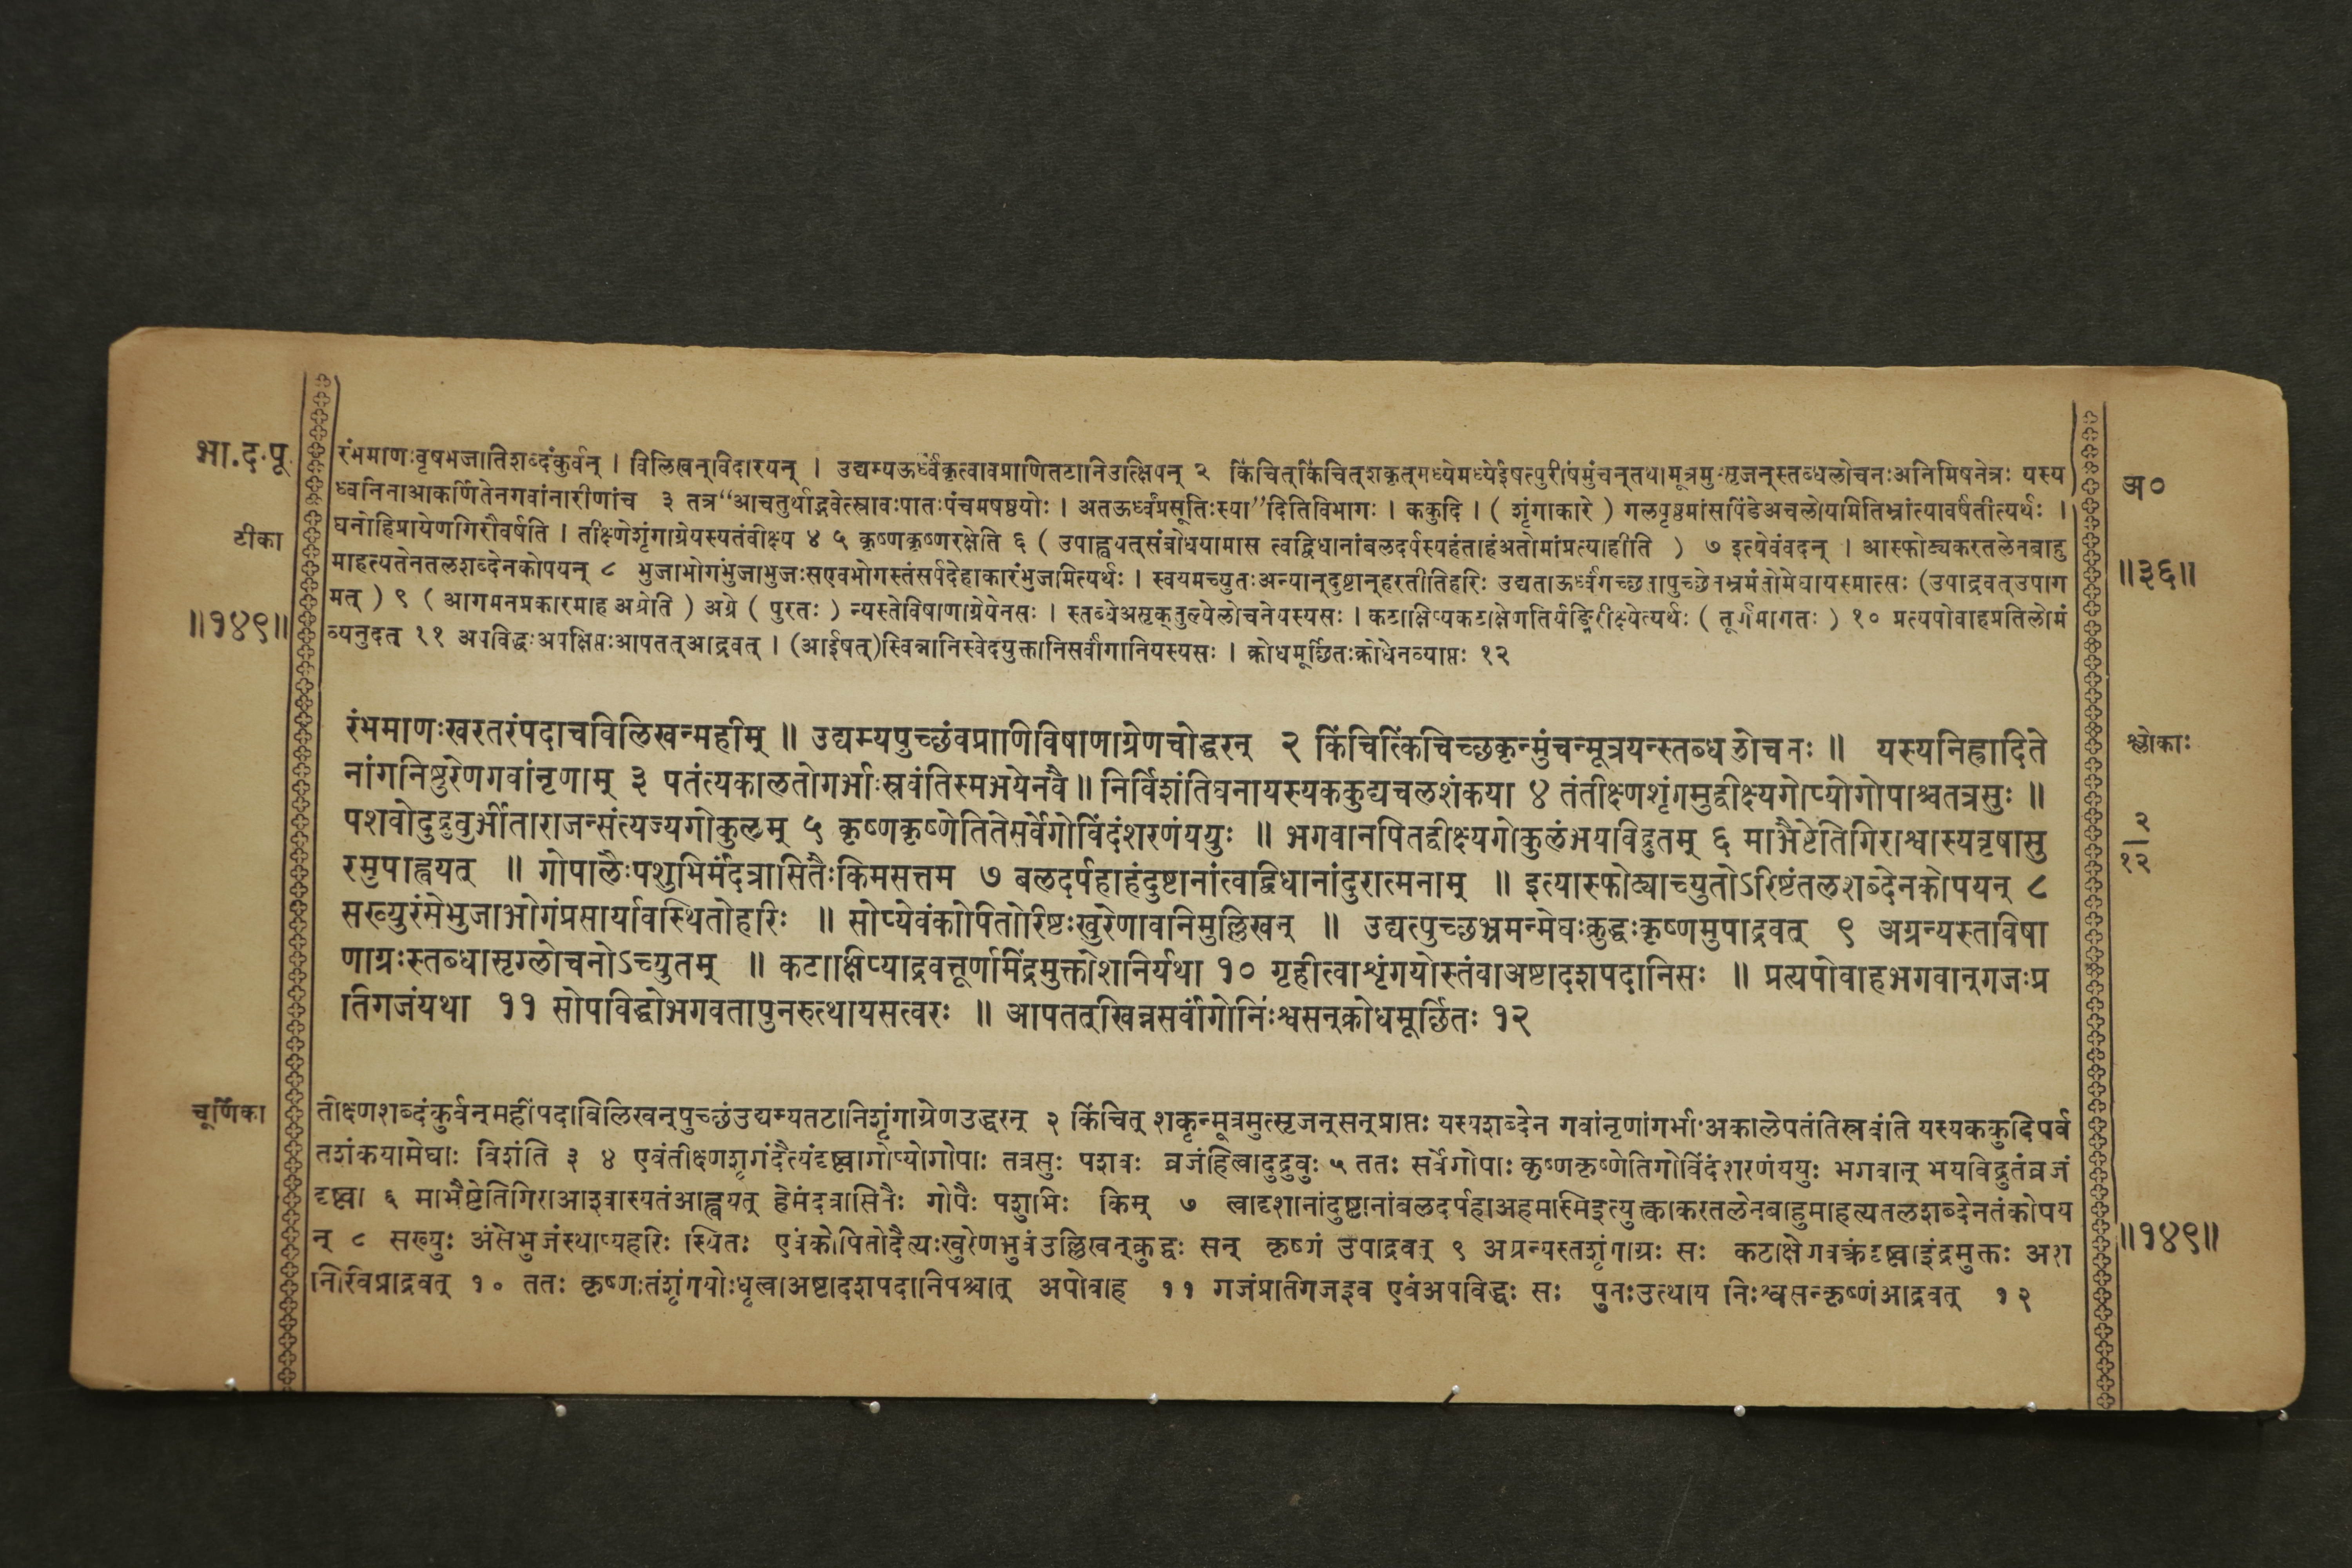 भा.द.पू.
टीका
॥१४९॥
रंभमाणःवृषभजातिशब्दंकुर्वन् । विलिखन्विदारयन् । उद्यम्यऊर्ध्वंकृत्वावप्राणितटानिउत्क्षिपन् २ किंचित्किंचित्शकृत्मध्येमध्येईषत्पुरीषंमुंचन्तथामूत्रमुत्सृजन्स्तब्धलोचनःअनिमिषनेत्रः यस्य
ध्वनिनाआकर्णितेनगवांनारीणांच ३ तत्र“आचतुर्थाद्भवेत्स्रावःपातःपंचमषष्ठयोः । अतऊर्ध्वंप्रसूतिःस्या”दितिविभागः । ककुदि । ( शृंगाकारे ) गलपृष्ठमांसपिंडेअचलोयमितिभ्रांत्यावर्षंतीत्यर्थः ।
घनोहिप्रायेणगिरौवर्षति । तीक्ष्णेशृंगाग्रेयस्यतंवीक्ष्य ४ ५ कृष्णकृष्णरक्षेति ६ ( उपाह्वयत्संबोधयामास त्वद्विधानांबलदर्पस्यहंताहंअतोमांप्रत्याहीति ) ७ इत्येवंवदन् । आस्फोट्यकरतलेनबाहु
माहत्यतेनतलशब्देनकोपयन् ८ भुजाभोगंभुजाभुजःसएवभोगस्तंसर्पदेहाकारंभुजमित्यर्थः । स्वयमच्युतःअन्यान्दुष्टान्हरतीतिहरिः उद्यताऊर्ध्वंगच्छतापुच्छेनभ्रमंतोमेघायस्मात्सः (उपाद्रवत्उपाग
मत् ) ९ ( आगमनप्रकारमाह अग्रेति ) अग्रे ( पुरतः ) न्यस्तेविषाणाग्रेयेनसः । स्तब्धेअसृक्तुल्येलोचनेयस्यसः । कटाक्षिप्यकटाक्षेणतिर्यङ्निरीक्ष्येत्यर्थः ( तूर्णमागतः ) १० प्रत्यपोवाहप्रतिलोमं
व्यनुदत् ११ अपविद्धःअपक्षिप्तःआपतत्आद्रवत् । (आईषत्)स्विन्नानिस्वेदयुक्तानिसर्वांगानियस्यसः । क्रोधमूर्छितःक्रोधेनव्याप्तः १२
अ०
॥३६॥
रंभमाणःखरतरंपदाचविलिखन्महीम् ॥ उद्यम्यपुच्छंवप्राणिविषाणाग्रेणचोद्धरन् २ किंचित्किंचिच्छकृन्मुंचन्मूत्रयन्स्तब्धलोचनः ॥ यस्यनिर्ह्रादिते
नांगनिष्ठुरेणगवांनृणाम् ३ पतंत्यकालतोगर्भाःस्रवंतिस्मभयेनवै ॥ निर्विशंतिघनायस्यककुद्यचलशंकया ४ तंतीक्ष्णशृंगमुद्वीक्ष्यगोप्योगोपाश्चतत्रसुः ॥
पशवोदुद्रुवुर्भीताराजन्संत्यज्यगोकुलम् ५ कृष्णकृष्णेतितेसर्वेगोविंदंशरणंययुः ॥ भगवानपितद्वीक्ष्यगोकुलंभयविद्रुतम् ६ माभैष्टेतिगिराश्वास्यवृषासु
रमुपाह्वयत् ॥ गोपालैःपशुभिर्मंदत्रासितैःकिमसत्तम ७ बलदर्पहाहंदुष्टानांत्वद्विधानांदुरात्मनाम् ॥ इत्यास्फोट्याच्युतोऽरिष्टंतलशब्देनकोपयन् ८
सख्युरंसेभुजाभोगंप्रसार्यावस्थितोहरिः ॥ सोप्येवंकोपितोरिष्टःखुरेणावनिमुल्लिखन् ॥ उद्यत्पुच्छभ्रमन्मेघःक्रुद्धःकृष्णमुपाद्रवत् ९ अग्रन्यस्तविषा
णाग्रःस्तब्धासृग्लोचनोऽच्युतम् ॥ कटाक्षिप्याद्रवत्तूर्णमिंद्रमुक्तोशनिर्यथा १० गृहीत्वाशृंगयोस्तंवाअष्टादशपदानिसः ॥ प्रत्यपोवाहभगवान्गजःप्र
तिगजंयथा ११ सोपविद्धोभगवतापुनरुत्थायसत्वरः ॥ आपतत्खिन्नसर्वांगोनिःश्वसन्क्रोधमूर्छितः १२
श्लोकाः
२
१२
चूर्णिका
तीक्ष्णशब्दंकुर्वन्महींपदाविलिखन्पुच्छंउद्यम्यतटानिशृंगाग्रेणउद्धरन् २ किंचित् शकृन्मूत्रमुत्सृजन्सन्प्राप्तः यस्यशब्देन गवांनृणांगर्भाःअकालेपतंतिस्रवंति यस्यककुदिपर्व
तशंकयामेघाः विशंति ३ ४ एवंतीक्ष्णशृगंदैत्यंदृष्ट्वागोप्योगोपाः तत्रसुः पशवः व्रजंहित्वादुद्रुवुः ५ ततः सर्वेगोपाः कृष्णकृष्णेतिगोविंदंशरणंययुः भगवान् भयविद्रुतंव्रजं
दृष्ट्वा ६ माभैष्टेतिगिराआश्वास्यतंआह्वयत् हेमंदत्रासितैः गोपैः पशुभिः किम् ७ त्वादृशानांदुष्टानांबलदर्पहाअहमस्मिइत्युक्त्वाकरतलेनबाहुमाहत्यतलशब्देनतंकोपय
न् ८ सख्युः अंसेभुजंस्थाप्यहरिः स्थितः एवंकोपितोदैत्यःखुरेणभुवंउल्लिखन्क्रुद्धः सन् कृष्णं उपाद्रवत् ९ अग्रन्यस्तशृंगाग्रः सः कटाक्षेणवक्रंदृष्ट्वाइंद्रमुक्तः अश
निरिवप्राद्रवत् १० ततः कृष्णःतंशृंगयोःधृत्वाअष्टादशपदानिपश्चात् अपोवाह ११ गजंप्रतिगजइव एवंअपविद्धः सः पुनःउत्थाय निःश्वसन्कृष्णंआद्रवत् १२
॥१४९॥